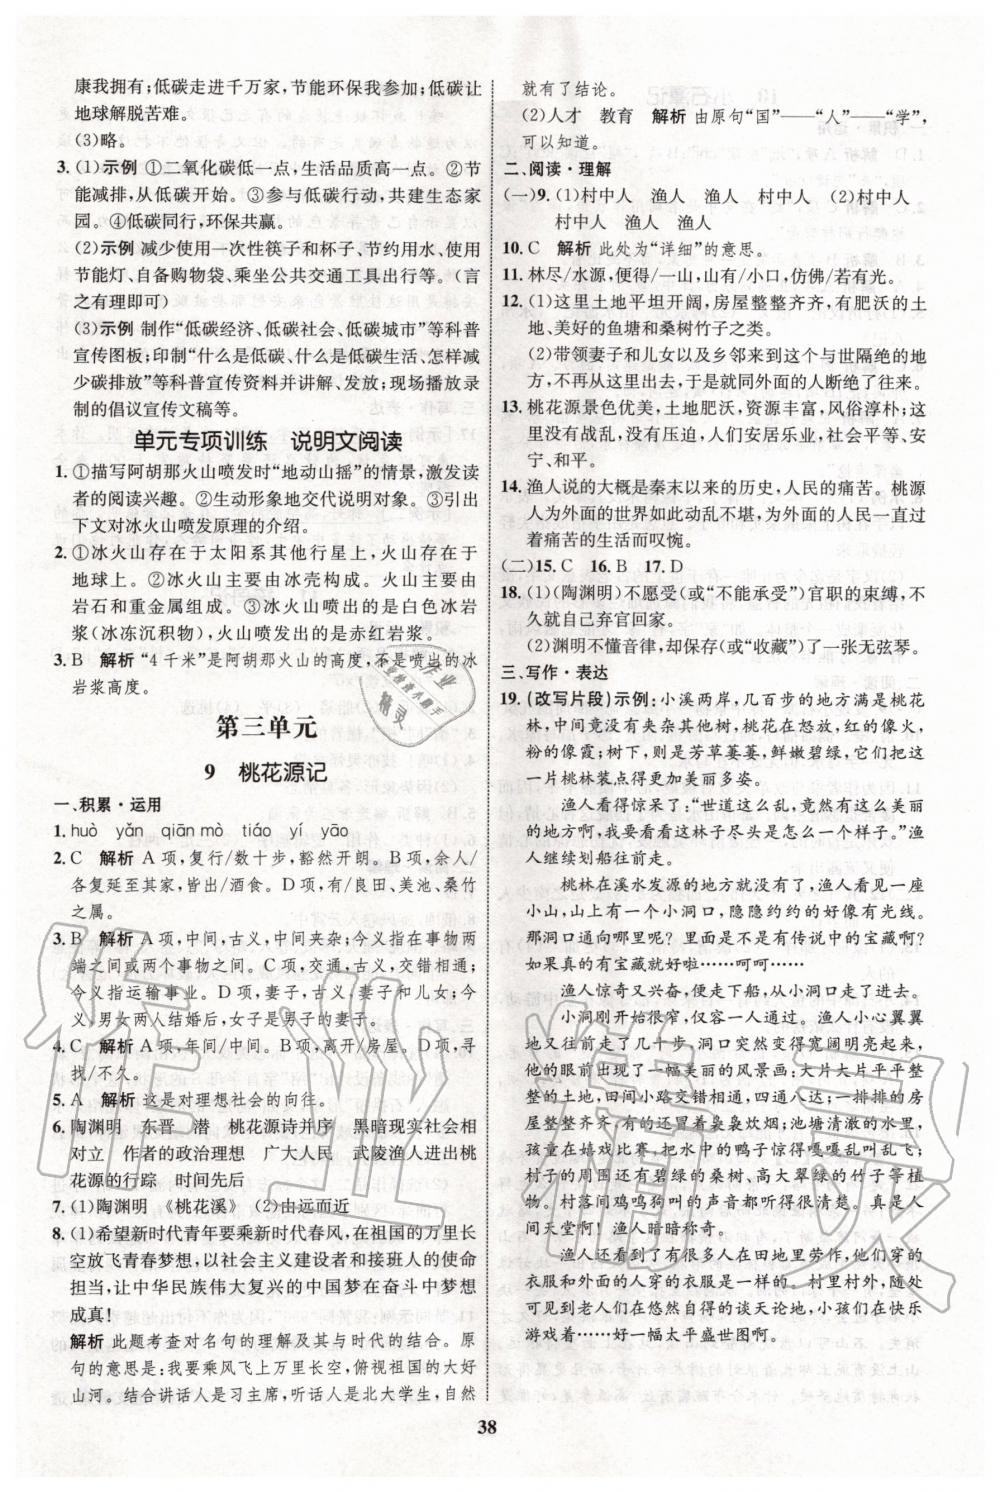 康我拥有;低碳走进千万家,节能环保我参加;低碳让
地球解脱苦难。
(3)略。
3. (1)示例 ①二氧化碳低一点,生活品质高一点。②节
能减排,从低碳开始。③参与低碳行动,共建生态家
园。④低碳同行,环保共赢。
(2)示例 减少使用一次性筷子和杯子、节约用水、使用
节能灯、自备购物袋、乘坐公共交通工具出行等。(言
之有理即可)
(3)示例 制作“低碳经济、低碳社会、低碳城市”等科普
宣传图板;印制“什么是低碳、什么是低碳生活、怎样减
少碳排放”等科普宣传资料并讲解、发放;现场播放录
制的倡议宣传文稿等。
单元专项训练 说明文阅读
1. ①描写阿胡那火山喷发时“地动山摇”的情景,激发读
者的阅读兴趣。②生动形象地交代说明对象。③引出
下文对冰火山喷发原理的介绍。
2. ①冰火山存在于太阳系其他行星上,火山存在于
地球上。②冰火山主要由冰壳构成。火山主要由
岩石和重金属组成。③冰火山喷出的是白色冰岩
浆(冰冻沉积物),火山喷发出的是赤红岩浆。
3. B 解析 “4千米”是阿胡那火山的高度,不是喷出的冰
岩浆高度。
第三单元
9 桃花源记
一、积累·运用
1. huò yǎn qiān mò tiáo yí yāo
2. C 解析 A项,复行/数十步,豁然开朗。B项,余人/
各复延至其家,皆出/酒食。D项,有/良田、美池、桑竹
之属。
3. B 解析 A项,中间,古义,中间夹杂;今义指在事物两
端之间或两个事物之间。C项,交通,古义,交错相通;
今义指运输事业。D项,妻子,古义,妻子和儿女;今
义,男女两人结婚后,女子是男子的妻子。
4. C 解析 A项,年间/中间。B项,离开/房屋。D项,寻
找/不久。
5. A 解析 这是对理想社会的向往。
6. 陶渊明 东晋 潜 桃花源诗并序 黑暗现实社会相
对立 作者的政治理想 广大人民 武陵渔人进出桃
花源的行踪 时间先后
7. (1)陶渊明 《桃花溪》 (2)由远而近
8. (1)希望新时代青年要乘新时代春风,在祖国的万里长
空放飞青春梦想,以社会主义建设者和接班人的使命
担当,让中华民族伟大复兴的中国梦在奋斗中梦想
成真!
解析 此题考查对名句的理解及其与时代的结合。原
句的意思是:我要乘风飞上万里长空,俯视祖国的大好
山河。结合讲话人是习主席,听话人是北大学生,自然
就有了结论。
(2)人才 教育 解析 由原句“国”——“人”——“学”,
可以知道。
二、阅读·理解
(一)9. (1)村中人 渔人 渔人 村中人 (2)村中人
村中人 渔人 渔人
10. C 解析 此处为“详细”的意思。
11. 林尽/水源,便得/一山,山有/小口,仿佛/若有光。
12. (1)这里土地平坦开阔,房屋整整齐齐,有肥沃的土
地、美好的鱼塘和桑树竹子之类。
(2)带领妻子和儿女以及乡邻来到这一与世隔绝的地
方,不再从这里出去,于是就同外面的人断绝了往来。
13. 桃花源景色优美,土地肥沃,资源丰富,风俗淳朴;这
里没有战乱,没有压迫,人们安居乐业,社会平等、安
宁、和平。
14. 渔人说的大概是秦末以来的历史,人民的痛苦。桃源
人为外面的世界如此动乱不堪,为外面的人民一直过
着痛苦的生活而叹惋。
(二)15. C 16. B 17. D
18. (1)(陶渊明)不愿受(或“不能承受”)官职的束缚,不
久就自己弃官回家。
(2)渊明不懂音律,却保存(或“收藏”)了一张无弦琴。
三、写作·表达
19. (改写片段)示例:小溪两岸,几百步的地方满是桃花
林,中间竟没有夹杂其他树,桃花在怒放,红的像火,
粉的像霞;树下,则是芳草萋萋,鲜嫩碧绿,它们把这
片桃林装点得更加美丽多姿。
渔人看得惊呆了:“世道这么乱,竟然有这么美丽
的地方!我要看看这林子尽头是怎么个样子。”渔
人继续划船往前走。
桃林在溪水发源的地方就没有了,渔人看见一座
小山,山上有一个小洞口,隐隐约约的好像有光线。
那洞口通向哪里呢?里面是不是有传说中的宝藏啊?
如果真的有宝藏被我找到,那……呵呵……
渔人惊奇又兴奋,便走下船,从小洞口走了进去。
小洞刚开始很窄,仅容一人通过。渔人小心翼翼
地又往前走了几十步,洞口突然变得宽阔明亮起来,
他的眼前出现了一幅美丽的风景画:大片大片平平整
整的土地,田间小路交错相通;一排排的房
屋整整齐齐,有几家的上空有袅袅炊烟;池塘清澈的水里,
孩童在嬉戏比赛,把水中的鸭子惊得嘎嘎乱叫乱飞;
村子里随处可见碧绿的桑树,高大挺拔的竹子等其他
树种。村落间鸡鸣狗叫的声音都听得很清楚。真是人
间天堂啊!渔人暗暗称奇。
渔人还看到了有很多人在田地里劳作,他们穿的
衣服和外面的人穿的衣服是一样的。村里村外,随处
可见老人们三五成群的谈天论地,小孩们在快乐地做
游戏着……好一幅太平盛世图。
38